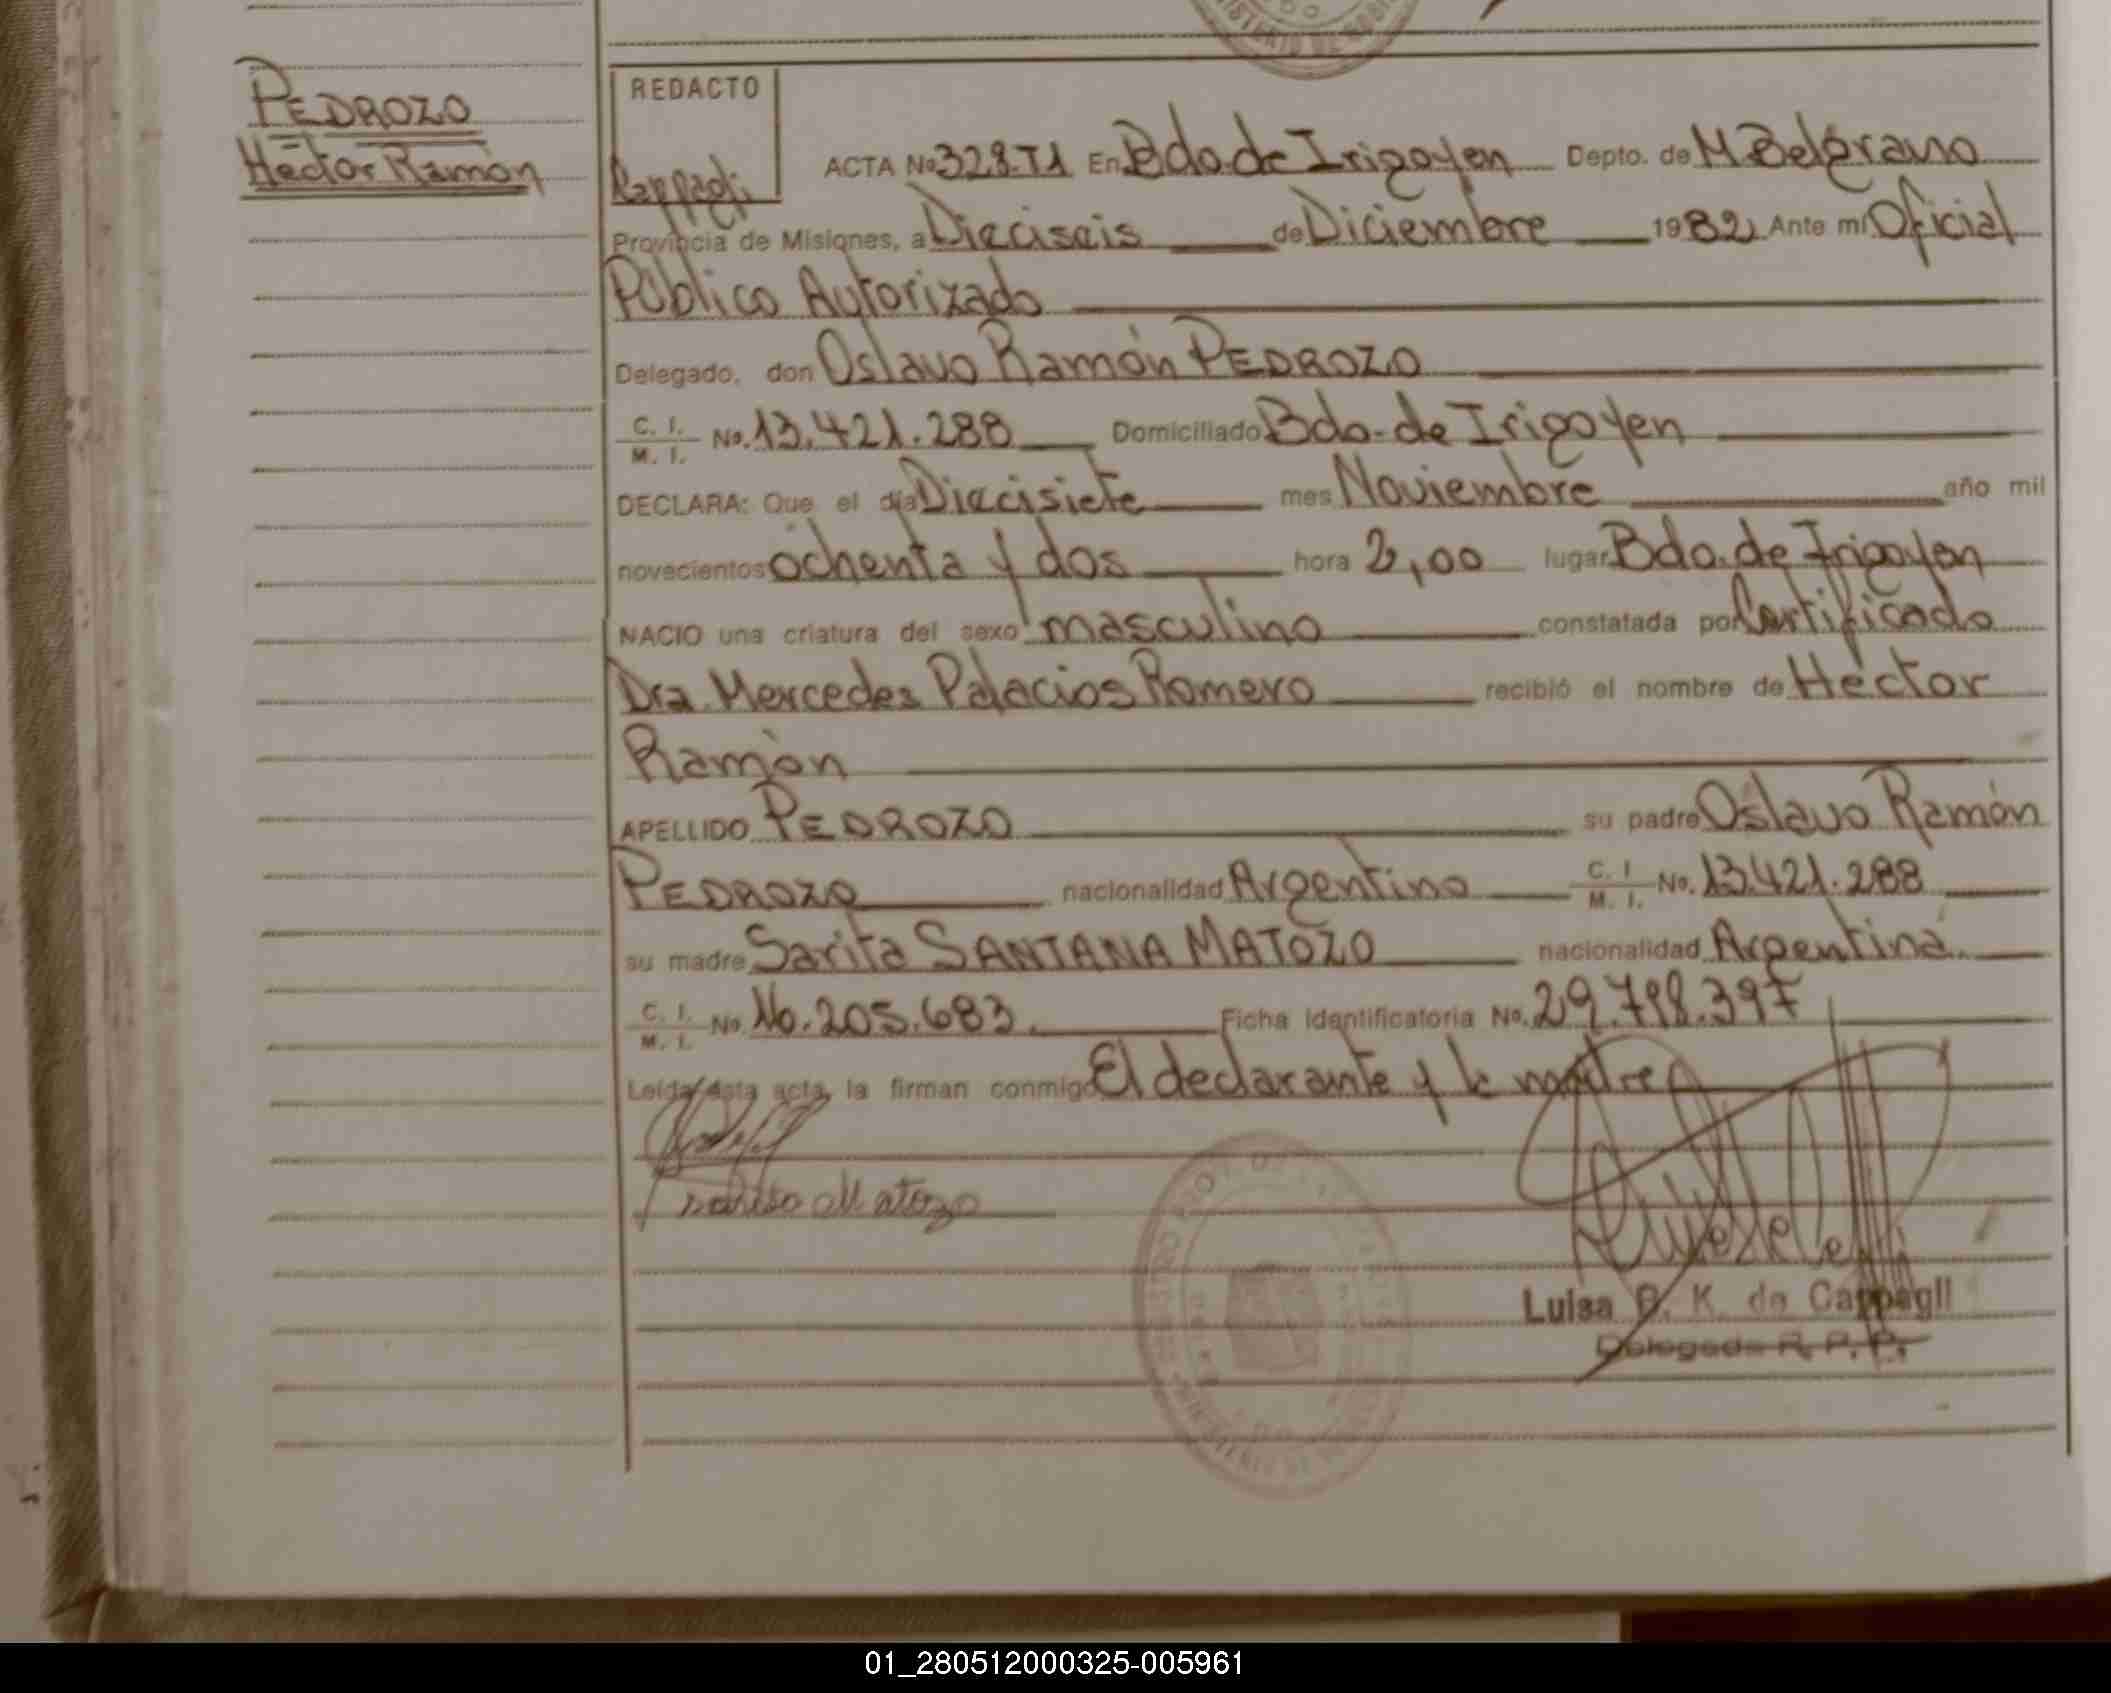 PEDROZO
Héctor Ramón
REDACTO
Cappagli
ACTA No 328.T1 En Bdo. de Irigoyen Depto. de M Belgrano
Provincia de Misiones, a Dieciseis de Diciembre 1982 Ante mi Oficial
Público Autorizado
Delegado, don Oslavo Ramón PEDROZO
C. I. / M. I. No. 13.421.288 Domiciliado Bdo. de Irigoyen
DECLARA: Que el día Diecisiete mes Noviembre año mil
novecientos ochenta y dos hora 2,00 lugar Bdo. de Irigoyen
NACIO una criatura del sexo masculino constatada por Certificado
Dra. Mercedes Palacios Romero recibió el nombre de Héctor
Ramón
APELLIDO PEDROZO su padre Oslavo Ramón
PEDROZO nacionalidad Argentino C. I. / M. I. No. 13.421.288
su madre Sarita SANTANA MATOZO nacionalidad Argentina.
C. I. / M. I. No. 16.205.683. Ficha Identificatoria No. 29.798.397
Leída ésta acta, la firman conmigo El declarante y la madre
Matozo
Luisa B. K. de Cappagli
Delegada R. P. P.
01_280512000325-005961